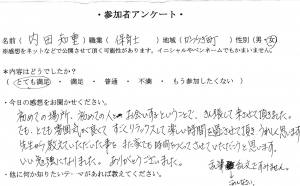 ・参加者アンケート・
名前( 内田 知里 )職業( 保育士 )地域( )性別(男・女)
※感想をネットなどで公開させて頂く可能性があります。イニシャルやペンネームでもかまいません。
*内容はどうでしたか?
とても満足 ・ 満足 ・ 普通 ・ 不満 ・ もう参加したくない )
・今日の感想をお聞かせください。
初めての場所、初めての人とお会いするということで、きん張して来させて頂きました。
でも、とても雰囲気が良くて、すごくリラックスして楽しい時間を過ごさせて頂き うれしく思います。
先生から教えていただいた事を、また家でも時間をつくってさせていただこうと思います。
いい勉強になりました。ありがとうございました。
・他に何か知りたいテーマがあれば教えてください。